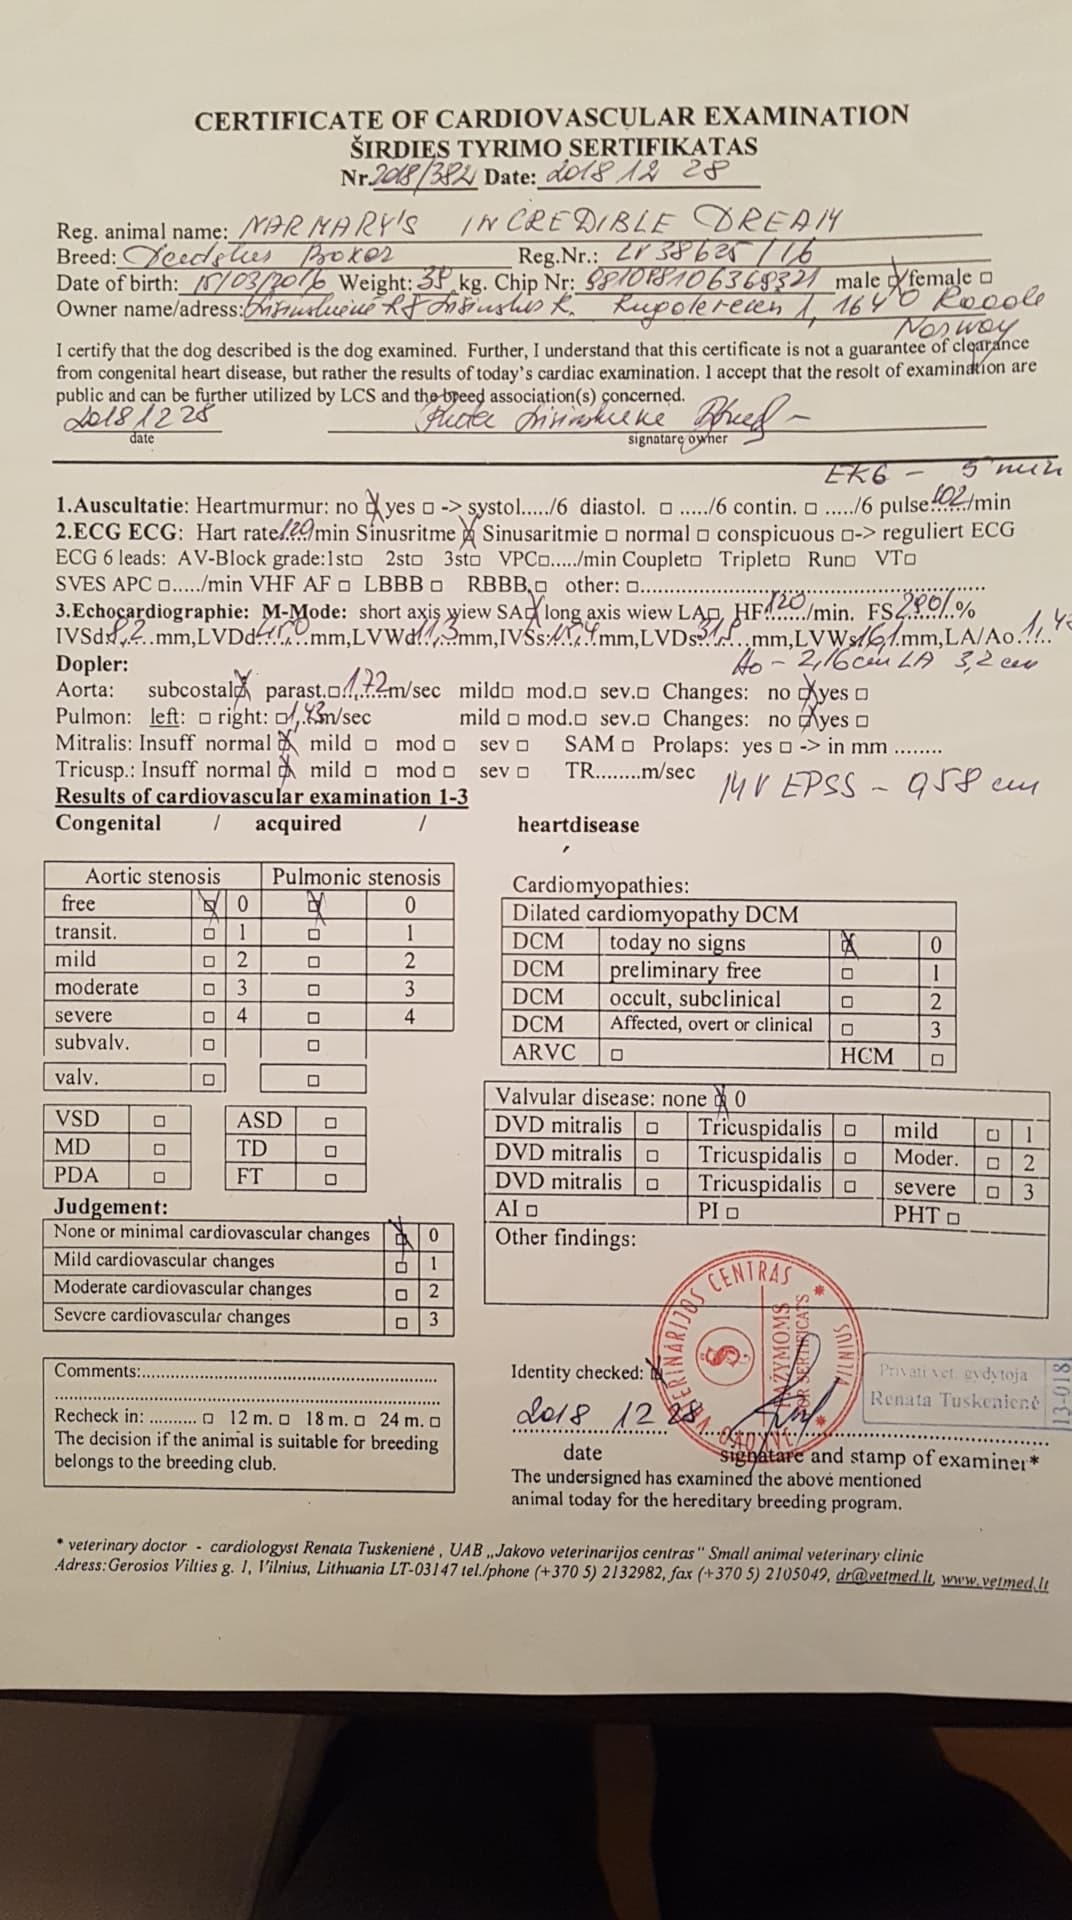 CERTIFICATE OF CARDIOVASCULAR EXAMINATION
ŠIRDIES TYRIMO SERTIFIKATAS
Nr. 2018/382 Date: 2018 12 28
Reg. animal name: NARMARY'S INCREDIBLE DREAM
Breed: Boxer Reg.Nr.: LV 38625/16
Date of birth: 15/03/2016 Weight: 38 kg. Chip Nr: 981088106368321 male female □
Owner name/adress: 1, 1640
Norway
I certify that the dog described is the dog examined. Further, I understand that this certificate is not a guarantee of clearance
from congenital heart disease, but rather the results of today's cardiac examination. I accept that the resolt of examination are
public and can be further utilized by LCS and the breed association(s) concerned.
2018 12 28
date signatare owner
EKG - 5 min
1.Auscultatie: Heartmurmur: no yes □ -> systol...../6 diastol. □ ...../6 contin. □ ...../6 pulse 102/min
2.ECG ECG: Hart rate 120/min Sinusritme Sinusaritmie □ normal □ conspicuous □-> reguliert ECG
ECG 6 leads: AV-Block grade:1st□ 2st□ 3st□ VPC□...../min Couplet□ Triplet□ Run□ VT□
SVES APC □...../min VHF AF □ LBBB □ RBBB □ other: □
3.Echocardiographie: M-Mode: short axis wiew SA long axis wiew LA□ HF 120/min. FS %
IVSd mm,LVDd mm,LVWd mm,IVSs mm,LVDs mm,LVWs 16,1 mm,LA/Ao
Ao - 2,16 cm LA 3,2 cm
Dopler:
Aorta: subcostal parast.□ 1,72m/sec mild□ mod.□ sev.□ Changes: no yes □
Pulmon: left: □ right: □ m/sec mild □ mod.□ sev.□ Changes: no yes □
Mitralis: Insuff normal mild □ mod □ sev □ SAM □ Prolaps: yes □ -> in mm ........
Tricusp.: Insuff normal mild □ mod □ sev □ TR........m/sec
EPSS - 0,58 cm
Results of cardiovascular examination 1-3
Congenital / acquired / heartdisease
Aortic stenosis Pulmonic stenosis
free 0 0
transit. □ 1 □ 1
mild □ 2 □ 2
moderate □ 3 □ 3
severe □ 4 □ 4
subvalv. □ □
valv. □ □
VSD □ ASD □
MD □ TD □
PDA □ FT □
Judgement:
None or minimal cardiovascular changes 0
Mild cardiovascular changes □ 1
Moderate cardiovascular changes □ 2
Severe cardiovascular changes □ 3
Comments:
Recheck in: .......... □ 12 m. □ 18 m. □ 24 m. □
The decision if the animal is suitable for breeding
belongs to the breeding club.
Cardiomyopathies:
Dilated cardiomyopathy DCM
DCM today no signs 0
DCM preliminary free □ 1
DCM occult, subclinical □ 2
DCM Affected, overt or clinical □ 3
ARVC □ HCM □
Valvular disease: none 0
DVD mitralis □ Tricuspidalis □ mild □ 1
DVD mitralis □ Tricuspidalis □ Moder. □ 2
DVD mitralis □ Tricuspidalis □ severe □ 3
AI □ PI □ PHT □
Other findings:
JAKOVO VETERINARIJOS CENTRAS * VILNIUS *
PAŽYMOMS
FOR SERTIFICATS
Identity checked:
Privati vet. gydytoja
Renata Tuskenienė
13-018
2018 12 28
date signatare and stamp of examiner*
The undersigned has examined the above mentioned
animal today for the hereditary breeding program.
* veterinary doctor - cardiologyst Renata Tuskenienė , UAB „Jakovo veterinarijos centras" Small animal veterinary clinic
Adress:Gerosios Vilties g. 1, Vilnius, Lithuania LT-03147 tel./phone (+370 5) 2132982, fax (+370 5) 2105049, dr@vetmed.lt, www.vetmed.lt